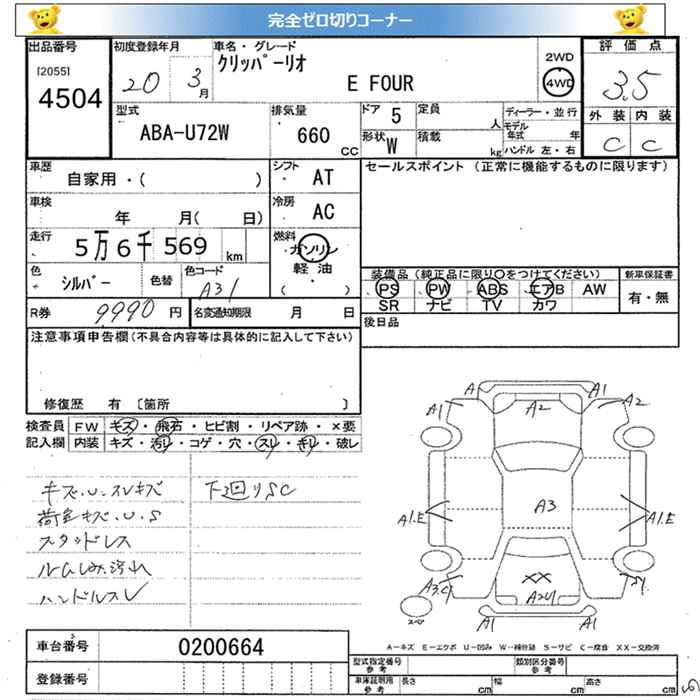 完全ゼロ切りコーナー
出品番号
[2055]
4504
初度登録年月
20 3月
車名・グレード
クリッパーリオ
E FOUR
2WD
4WD
評価点
3.5
外装 内装
C C
型式
ABA-U72W
排気量
660 CC
ドア 5
形状 W
定員 人
積載 kg
ディーラー・並行
モデル年式 年
ハンドル 左・右
車歴
自家用・( )
シフト AT
セールスポイント (正常に機能するものに限ります)
車検
年 月( 日)
冷房 AC
走行
5万6千569 km
燃料
ガソリン
軽油
( )
色
シルバー
色替
色コード
A31
装備品(純正品に限り○をつけてください)
PS PW ABS エアB AW
SR ナビ TV カワ
新車保証書
有・無
R券 9990 円
名変通知期限 月 日
後日品
注意事項申告欄(不具合内容等は具体的に記入して下さい)
修復歴 有 〔箇所 〕
検査員記入欄
FW キズ・飛石・ヒビ割・リペア跡・×要
内装 キズ・汚レ・コゲ・穴・スレ・キレ・破レ
キズ.U.スレキズ
下廻りSC
荷室キズ.U.S
スタッドレス
ルームしみ汚れ
ハンドルスレ
A1
A1
A1
A2
A2
A3
A1.E
A1.E
XX
A2U1
A3.C1
S1
A1
A1
車台番号 0200664
登録番号
A-キズ E-エクボ U-凹み W-補修跡 S-サビ C-腐食 XX-交換済
型式指定番号
参考
類別区分番号
参考
車庫証明用
参考
長さ cm
幅 cm
高さ cm